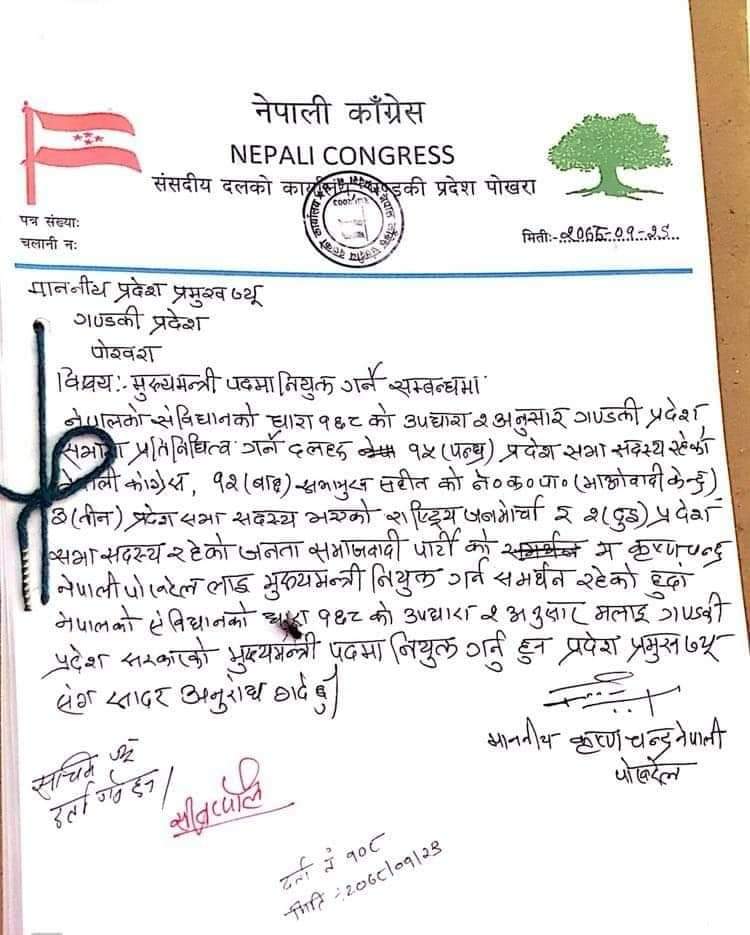 नेपाली काँग्रेस
NEPALI CONGRESS
संसदीय दलको कार्यालय गण्डकी प्रदेश पोखरा
पत्र संख्याः
चलानी नः
मितिः-
माननीय प्रदेश प्रमुख ज्यू
गण्डकी प्रदेश
पोखरा
विषय:- मुख्यमन्त्री पदमा नियुक्त गर्ने सम्बन्धमा
नेपालको संविधानको धारा १६८ को उपधारा २ अनुसार गण्डकी प्रदेश
सभामा प्रतिनिधित्व गर्ने दलहरु १५ (पन्ध्र) प्रदेश सभा सदस्य रहेको
नेपाली कांग्रेस, १२ (बाह्र) सभामुख सहित को ने०क०पा० (माओवादी केन्द्र)
३ (तीन) प्रदेश सभा सदस्य भएको राष्ट्रिय जनमोर्चा र २ (दुइ) प्रदेश
सभा सदस्य रहेको जनता समाजवादी पार्टी को म कृष्ण चन्द्र
नेपाली पोखरेल लाइ मुख्यमन्त्री नियुक्त गर्न समर्थन रहेको हुदा
नेपालको संविधानको धारा १६८ को उपधारा २ अनुसार मलाइ गण्डकी
प्रदेश सरकारको मुख्यमन्त्री पदमा नियुक्त गर्नु हुन प्रदेश प्रमुख ज्यू
संग सादर अनुरोध गर्दछु।
माननीय कृष्ण चन्द्र नेपाली
पोखरेल
सचिव ज्यू
दर्ता गर्नु हुन।
दर्ता नं १०८
मिति :-